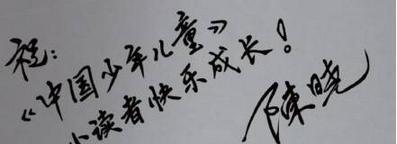 祝:
《中国少年儿童》
小读者快乐成长!
陳晓